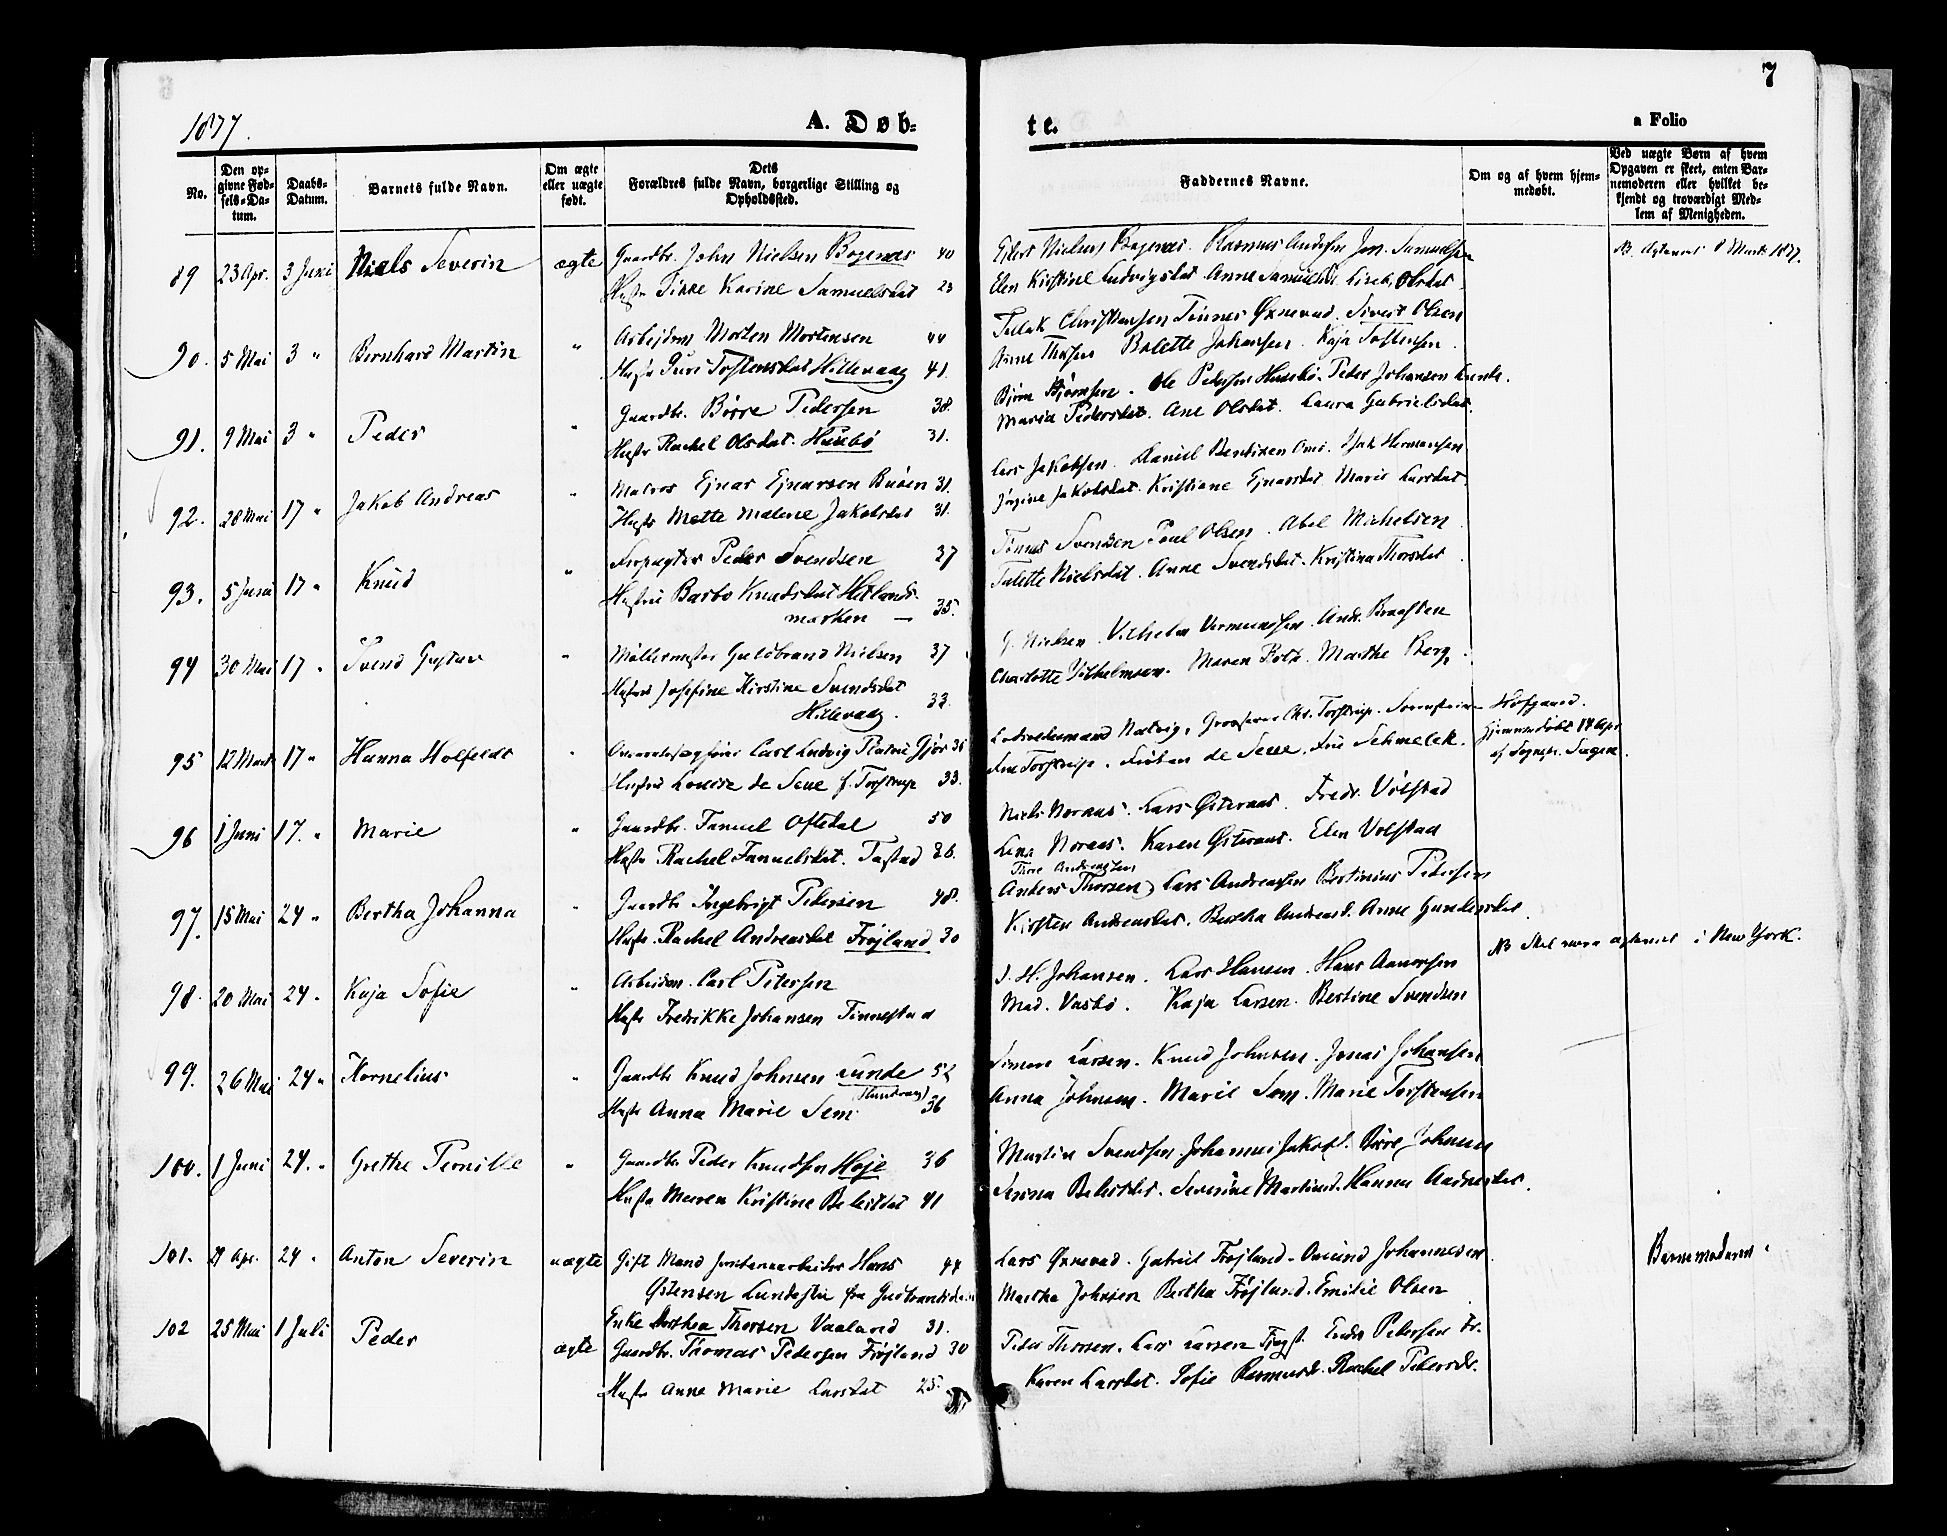 7
1877.
A. Døb-
te.
a Folio
No.
Den op-
givne Fød-
sels-Da-
tum.
Daabs-
Datum.
Barnets fulde Navn.
Om ægte
eller uægte
født.
Dets
Forældres fulde Navn, borgerlige Stilling og
Opholdssted.
Faddernes Navne.
Om og af hvem hjem-
medøbt.
Ved uægte Børn af hvem
Opgaven er skeet, enten Bar-
nemoderen eller hvilket be-
kjendt og troværdigt Med-
lem af Menigheden.
89 23 Apr. 3 Juni Niels Severin ægte Gaardbr. John Nielsen Bogenæs 40
Hustr Karine Samuelsdat 23
Nielsen Bogenæs. Rasmus Jon. Samuelsen
Elen Kirstine Ludvigsdat Anne Samuelsd. Olsdat
8 Marts 1877.
90. 5 Mai 3 " Bernhard Martin " Arbeidsm Morten Mortensen 44
Hustr Guri Tostensdat Hillevaag 41.
Christensen Tønnes Øxnevad. Sivert Olsen
Thorsen Bolette Johansen. Kaja Tostensen.
91. 9 Mai 3 " Peder " Gaardbr. Børre Pedersen 38.
Hustr Rachel Olsdat. Husebø 31.
Bjørn Bjørnsen. Ole Pedersen Husebø. Peder Johansen
Maria Pedersdat. Ane Olsdat. Laura Gabrielsdat.
92. 28 Mai 17 " Jakob Andreas " Matros Ejnar Ejnarsen Buøen 31.
Hustr Mette Malene Jakobsdat 31.
Lars Jakobsen. Daniel Bentsen Hermansen
Jakobsdat. Kristiane Ejnarsdat Marie Larsdat
93. 5 Juni 17 " Knud " Forpagter Peder Svendsen 37
Hustru Barbo Knudsdat Hetlands-
marken — 35.
Tønnes Svendsen Poul Olsen. Abel Michelsen
Talette Nielsdat. Anne Svendsdat. Kristina Thorsdat
94 30 Mai 17 " Svend Gustav " Møllermester Guldbrand Nielsen 37
Hustru Josefine Kirstine Svendsdat
Hillevaag. 33.
G. Nielsen. Vilhelm Vermundsen. Andr. Braasten
Charlotte Vilhelmsen. Maren Marthe Berg.
95 12 Marts 17 " Hanna Holfeldt " Carl Ludvig Gjør 35
Hustru Louise de Seue f. Torstrup 33.
Natvig, Grosserer Chr. Torstrup.
Fru Torstrup. Frøken de Seue. Fru Schmelck.
Hofgaard.
Hjemmedøbt 14 Apr
af Sognepr.
96 1 Juni 17. " Marie " Gaardbr. Fanuel Oftedal 50
Hustr Rachel Fanuelsdat. Tastad 26.
Niels Noraas. Lars Østeraas. Fredr. Volstad
Lena Noraas. Karen Østeraas. Elen Volstad
97. 15 Mai 24 " Bertha Johanna " Gaardbr Ingebrigt Pedersen 48.
Hustr. Rachel Andreasdat Frøjland 30
Andreassen
Anders Thorsen) Lars Andreassen Bertinius Pedersen
Kirsten Andreasdat. Bertha Andreasd. Anne Gundersdat.
98. 20 Mai 24 " Kaja Sofie " Arbeidsm. Carl Petersen
Hustr Fredrikke Johansen Tinnestad
J. H. Johansen. Lars Hansen. Hans Aanersen
Mad. Vasbø. Kaja Larsen. Bertine Svendsen
NB Skal være i New York.
99. 26 Mai 24 " Kornelius " Gaardbr Knud Johnsen Lunde 52
Hustr Anna Marie Sem 36
Larsen. Knud Johnsen. Jonas Johansen
Anna Johnsen. Marie Sem. Marie Torstensen
100. 1 Juni 24. " Grethe Pernille " Gaardbr Peder Knudsen Høje 36
Hustr Maren Kristine 41
Martin Svendsen. Johannes Jakobs. Børre Johnsen
Severine Hanna
101. 29 Apr. 24 " Anton Severin uægte Gift Mand Jernbanearbeider Hans 44
Østensen fra Gudbrandsdalen
Enke Dorthea Thorsen Vaaland 31.
Lars Øxnevad. Gabriel Frøjland. Omund Johannesen
Martha Johnsen Bertha Frøjland. Emilie Olsen
Barnemoderen
102 25 Mai 1 Juli Peder ægte Gaardbr. Thomas Pedersen Frøjland 30
Hustr Anne Marie Larsdat 25.
Peder Thorsen. Lars Larsen Pedersen Fr.
Karen Larsdat. Sofie Rasmusd. Rachel Pedersdr.